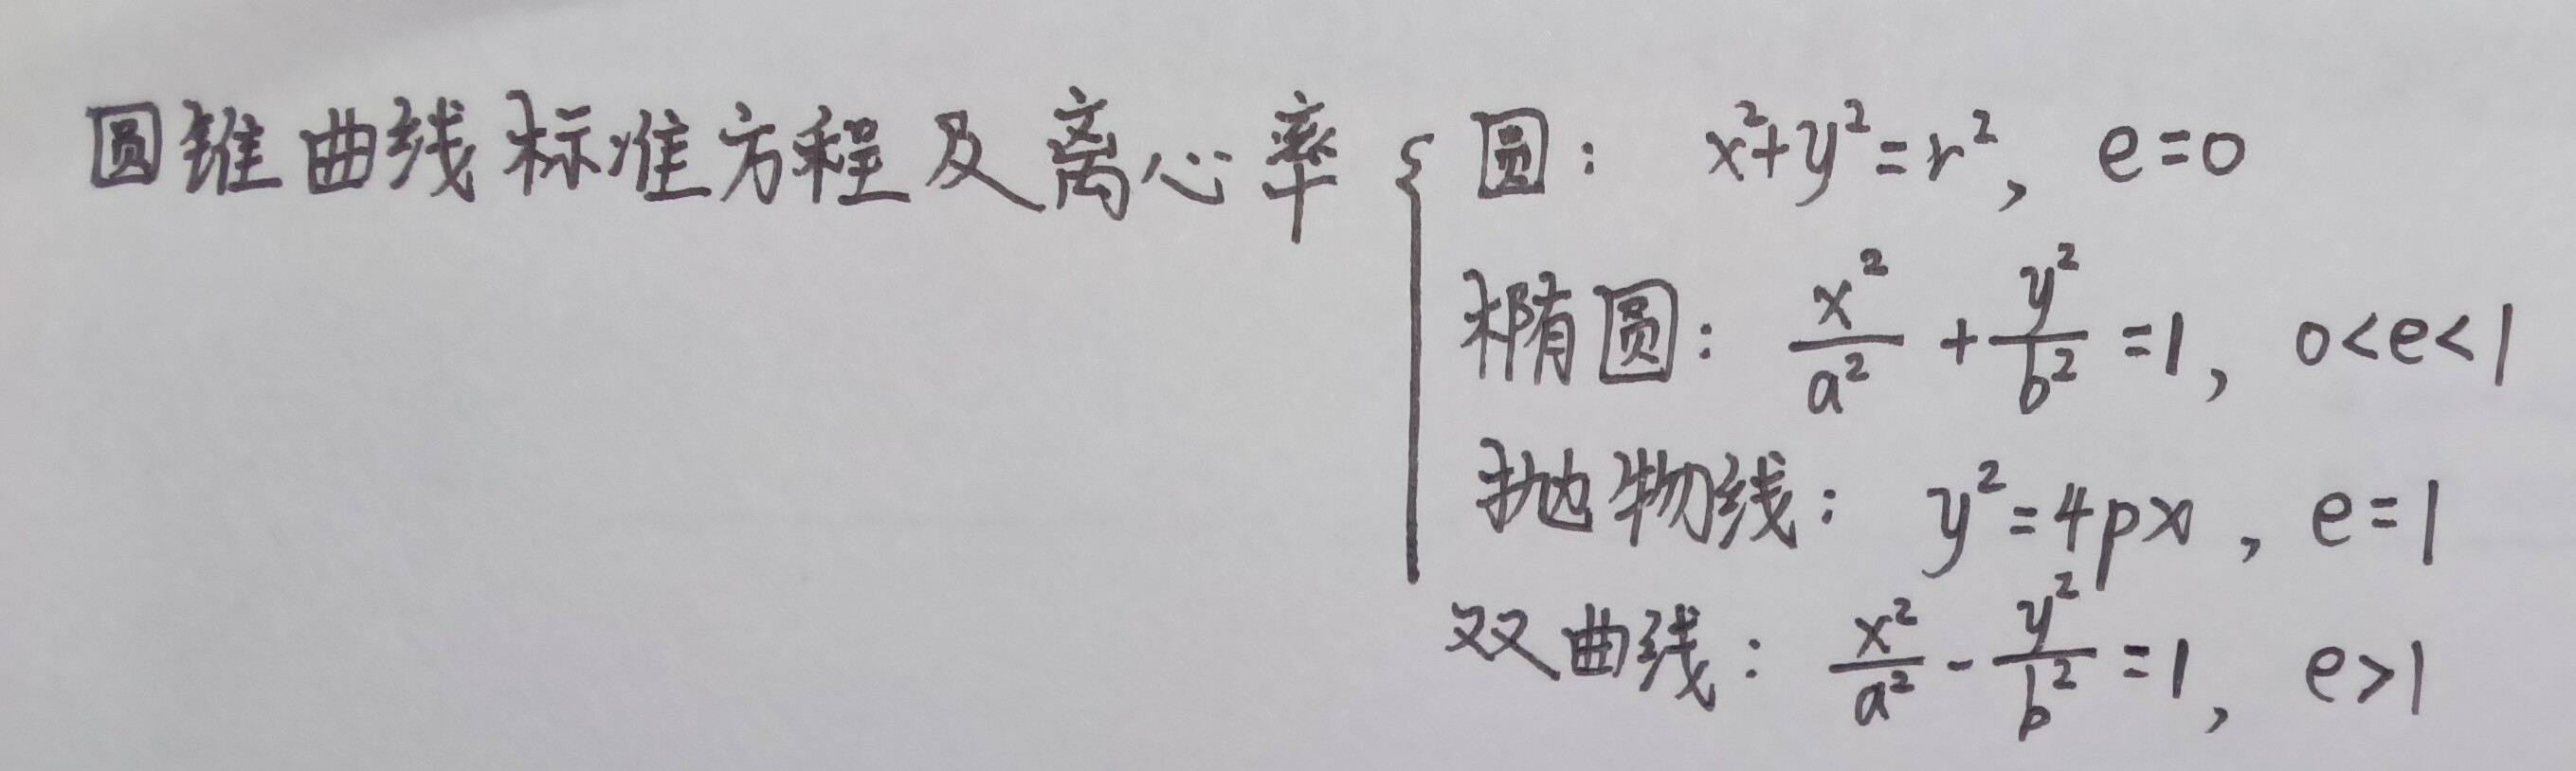 圆锥曲线标准方程及离心率 { 圆: x²+y²=r², e=0
椭圆: x²/a² + y²/b² =1, 0<e<1
抛物线: y²=4px, e=1
双曲线: x²/a² - y²/b² =1, e>1